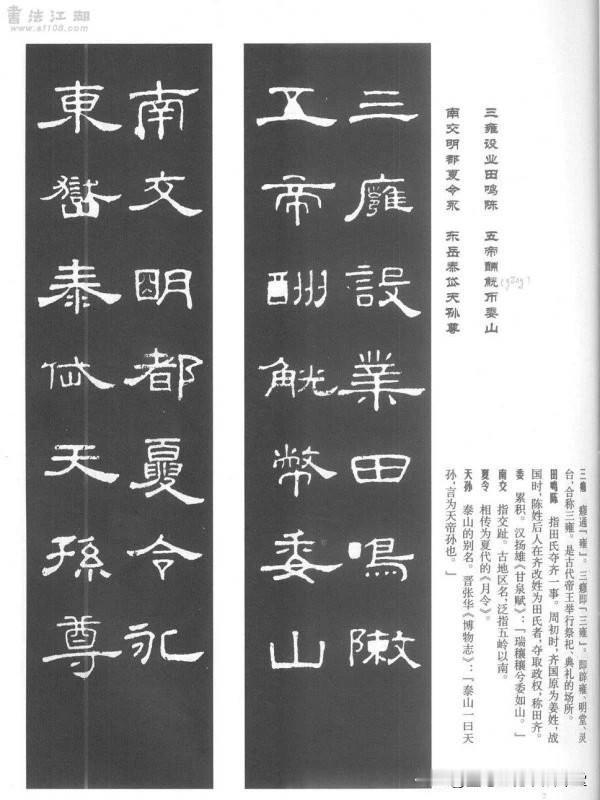 書法江湖
www.sf108.com
三雍设业田鸣陈 五帝酬觥币委山
(gōng)
南交明都夏令永 东岳泰岱天孙尊
三廱 廱通「雍」。三廱即「三雍」。即辟雍、明堂、灵
台，合称三雍。是古代帝王举行祭祀、典礼的场所。
田鸣陈 指田氏夺齐一事。周初时，齐国原为姜姓，战
国时，陈姓后人在齐改姓为田氏者，夺取政权，称田齐。
委 累积。汉扬雄《甘泉赋》：「瑞穰穰兮委如山。」
南交 指交趾。古地区名，泛指五岭以南。
夏令 相传为夏代的《月令》。
天孙 泰山的别名。晋张华《博物志》：「泰山一曰天
孙，言为天帝孙也。」
三廱設業田鳴敶
五帝酬觥幣委山
南交明都夏令永
東嶽泰岱天孫尊